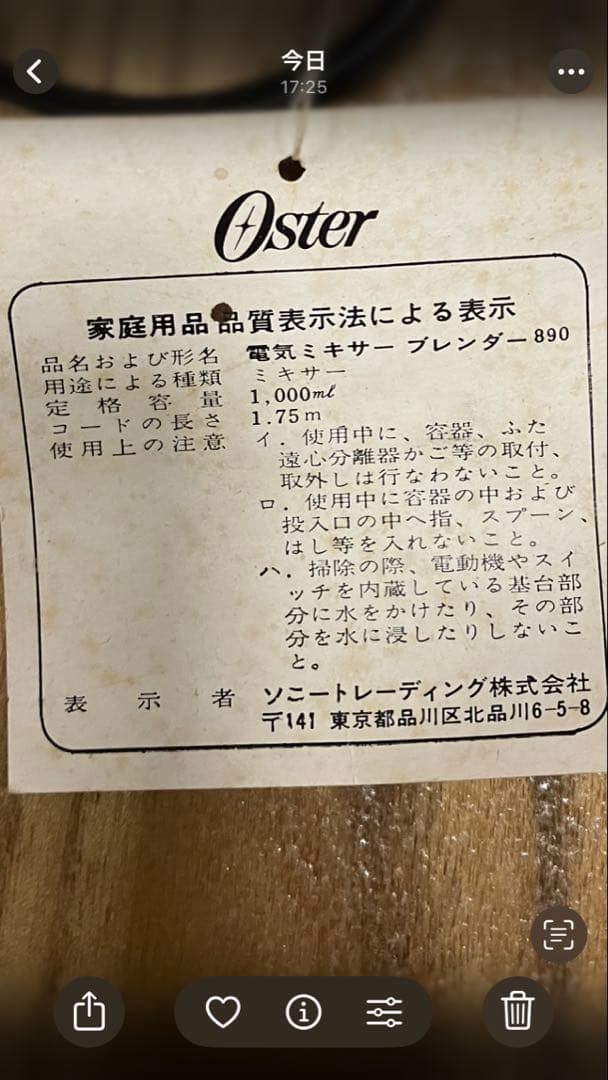 今日
17:25
Oster
家庭用品品質表示法による表示
品名および形名 電気ミキサー ブレンダー890
用途による種類 ミキサー
定格容量 1,000ml
コードの長さ 1.75m
使用上の注意 イ．使用中に、容器、ふた
遠心分離器かご等の取付、
取外しは行なわないこと。
ロ．使用中に容器の中および
投入口の中へ指、スプーン、
はし等を入れないこと。
ハ．掃除の際、電動機やスイ
ッチを内蔵している基台部
分に水をかけたり、その部
分を水に浸したりしないこ
と。
表示者 ソニートレーディング株式会社
〒141 東京都品川区北品川6-5-8